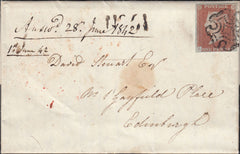 Answd. 28th June 1842
1st June 42
David Steuart Esqr
No 1 Gayfield Place
Edinburgh